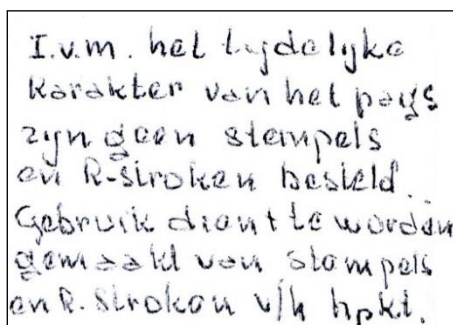 I.v.m. het tijdelijke
karakter van het pags
zijn geen stempels
en R-stroken besteld.
Gebruik dient te worden
gemaakt van stempels
en R. stroken v/h hpkt.